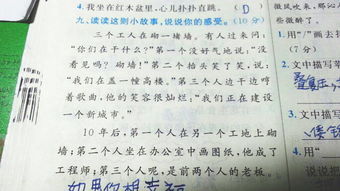 4.我坐在红木盆里,心儿扑扑直跳。 ( D )
九、读读这则小故事,说说你的感受。(10分)
三个工人在砌一堵墙。有人过来问:
“你们在干什么?”第一个没好气地说:“没
看见吗?砌墙!”第二个抬头笑了笑,说:
“我们在盖一幢高楼。”第三个人边干边哼
着歌曲,他的笑容很灿烂:“我们正在建设
一个新城市。”
10年后,第一个人在另一个工地上砌
墙;第二个人坐在办公室中画图纸,他成了
工程师;第三个人呢,是前两个人的老板。
如果你想幸福
微风吹来,那沁
些微醉了。
1.用“/”画去括
(7分)
2.文中描写
3.文中描写
4.用“
说说把